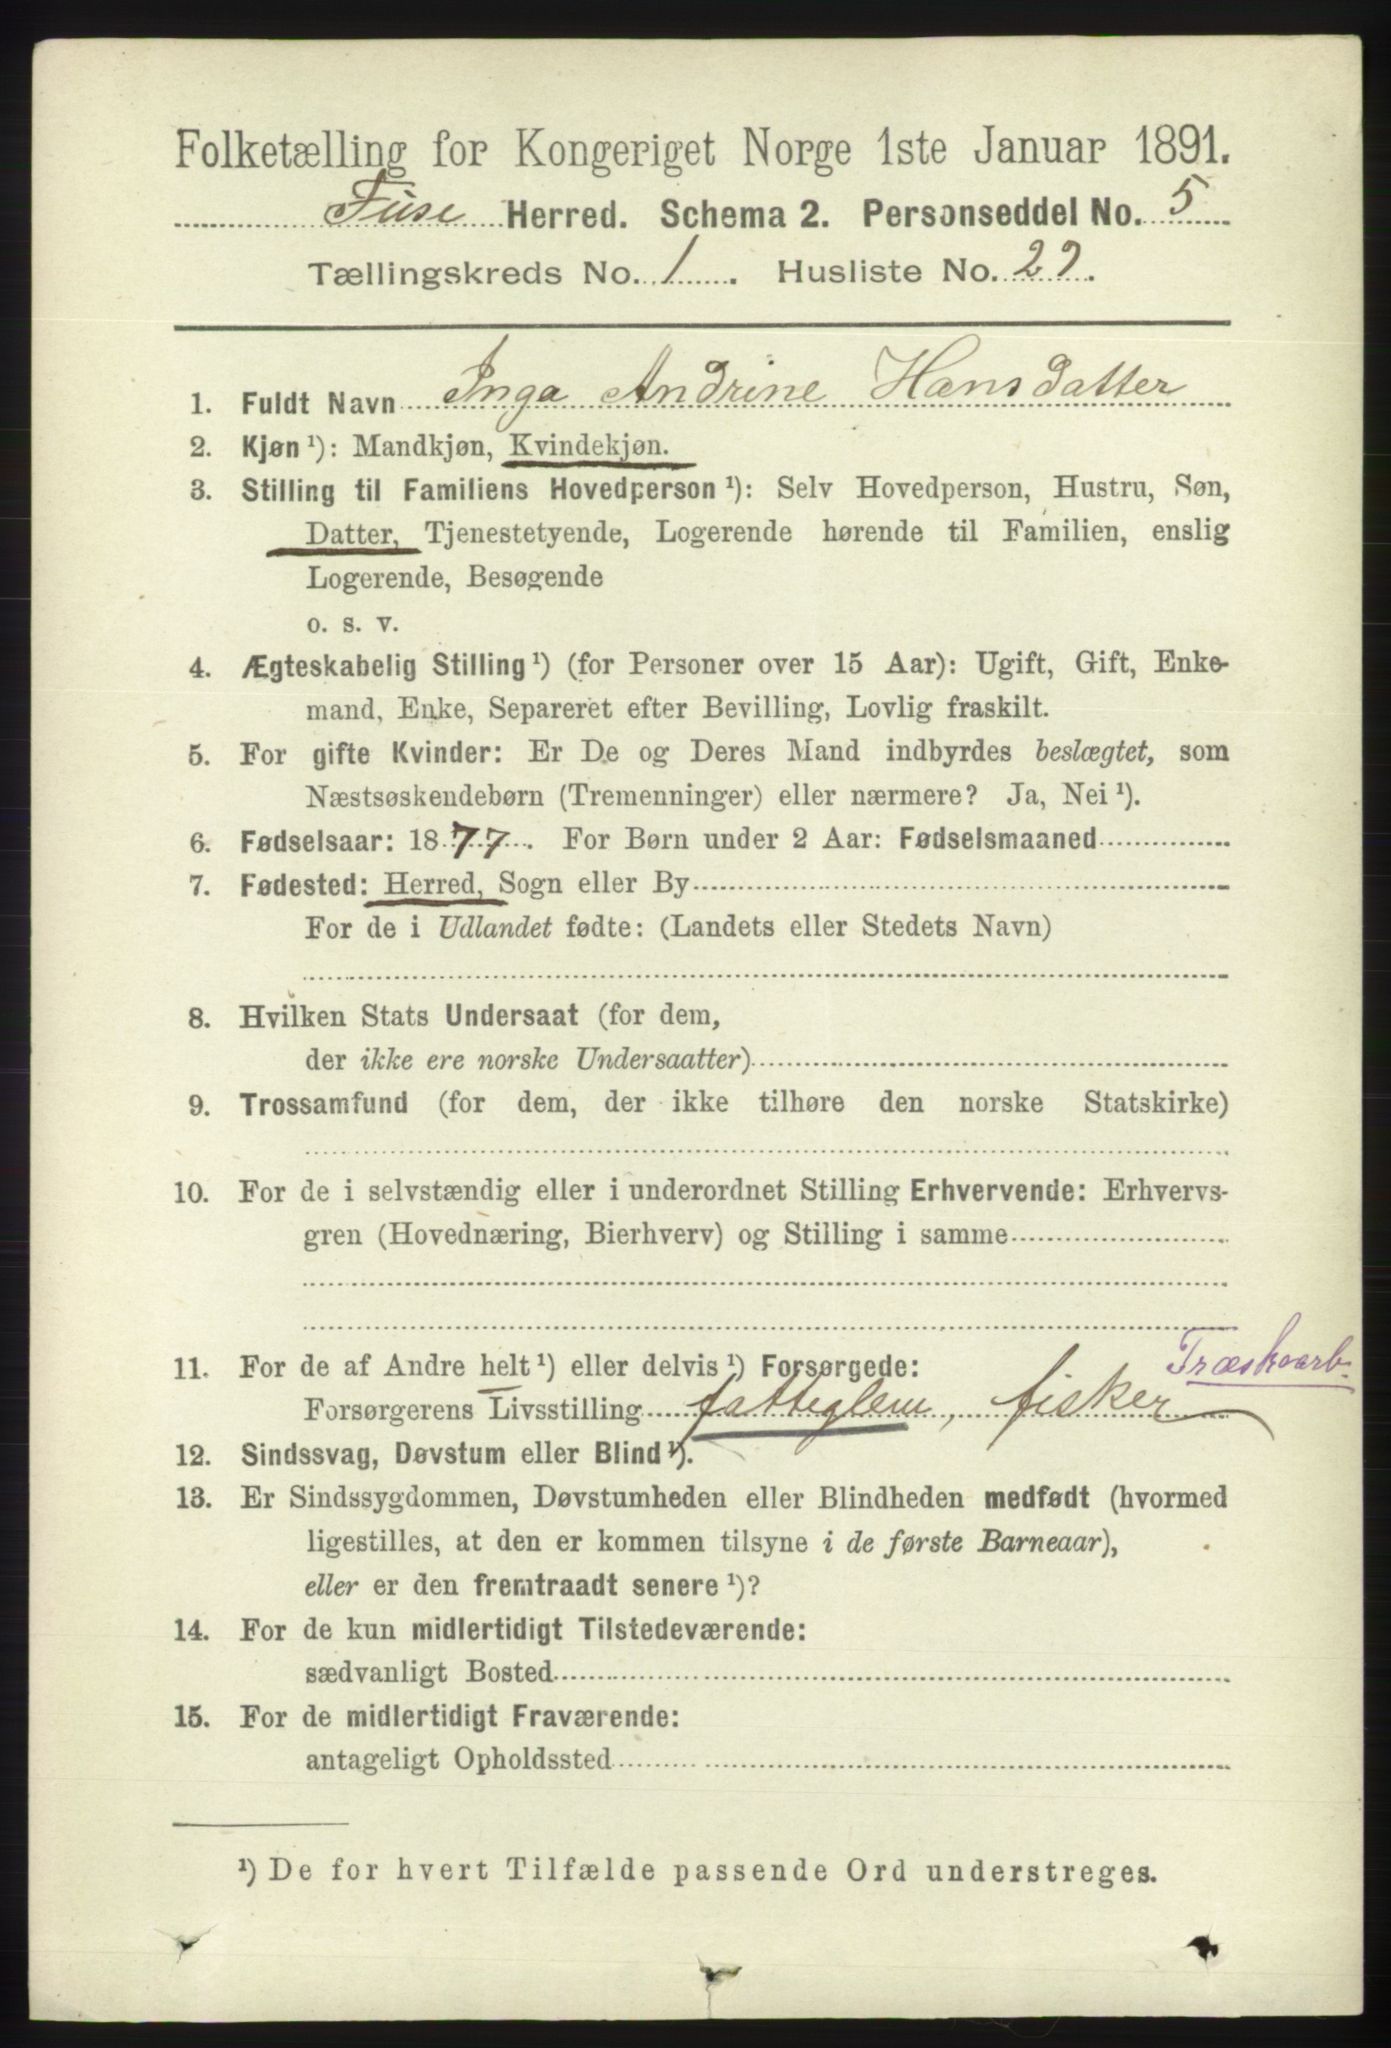 Folketælling for Kongeriget Norge 1ste Januar 1891.
Fuse Herred. Schema 2. Personseddel No. 5
Tællingskreds No. 1. Husliste No. 22.
1. Fuldt Navn Inga Andrine Hansdatter
2. Kjøn ¹): Mandkjøn, Kvindekjøn.
3. Stilling til Familiens Hovedperson ¹): Selv Hovedperson, Hustru, Søn,
Datter, Tjenestetyende, Logerende hørende til Familien, enslig
Logerende, Besøgende
o. s. v.
4. Ægteskabelig Stilling ¹) (for Personer over 15 Aar): Ugift, Gift, Enke-
mand, Enke, Separeret efter Bevilling, Lovlig fraskilt.
5. For gifte Kvinder: Er De og Deres Mand indbyrdes beslægtet, som
Næstsøskendebørn (Tremenninger) eller nærmere? Ja, Nei ¹).
6. Fødselsaar: 1877. For Børn under 2 Aar: Fødselsmaaned
7. Fødested: Herred, Sogn eller By
For de i Udlandet fødte: (Landets eller Stedets Navn)
8. Hvilken Stats Undersaat (for dem,
der ikke ere norske Undersaatter)
9. Trossamfund (for dem, der ikke tilhøre den norske Statskirke)
10. For de i selvstændig eller i underordnet Stilling Erhvervende: Erhvervs-
gren (Hovednæring, Bierhverv) og Stilling i samme
Træskoarb.
11. For de af Andre helt ¹) eller delvis ¹) Forsørgede:
Forsørgerens Livsstilling fatteglem, fisker
12. Sindssvag, Døvstum eller Blind ¹).
13. Er Sindssygdommen, Døvstumheden eller Blindheden medfødt (hvormed
ligestilles, at den er kommen tilsyne i de første Barneaar),
eller er den fremtraadt senere ¹)?
14. For de kun midlertidigt Tilstedeværende:
sædvanligt Bosted
15. For de midlertidigt Fraværende:
antageligt Opholdssted
¹) De for hvert Tilfælde passende Ord understreges.